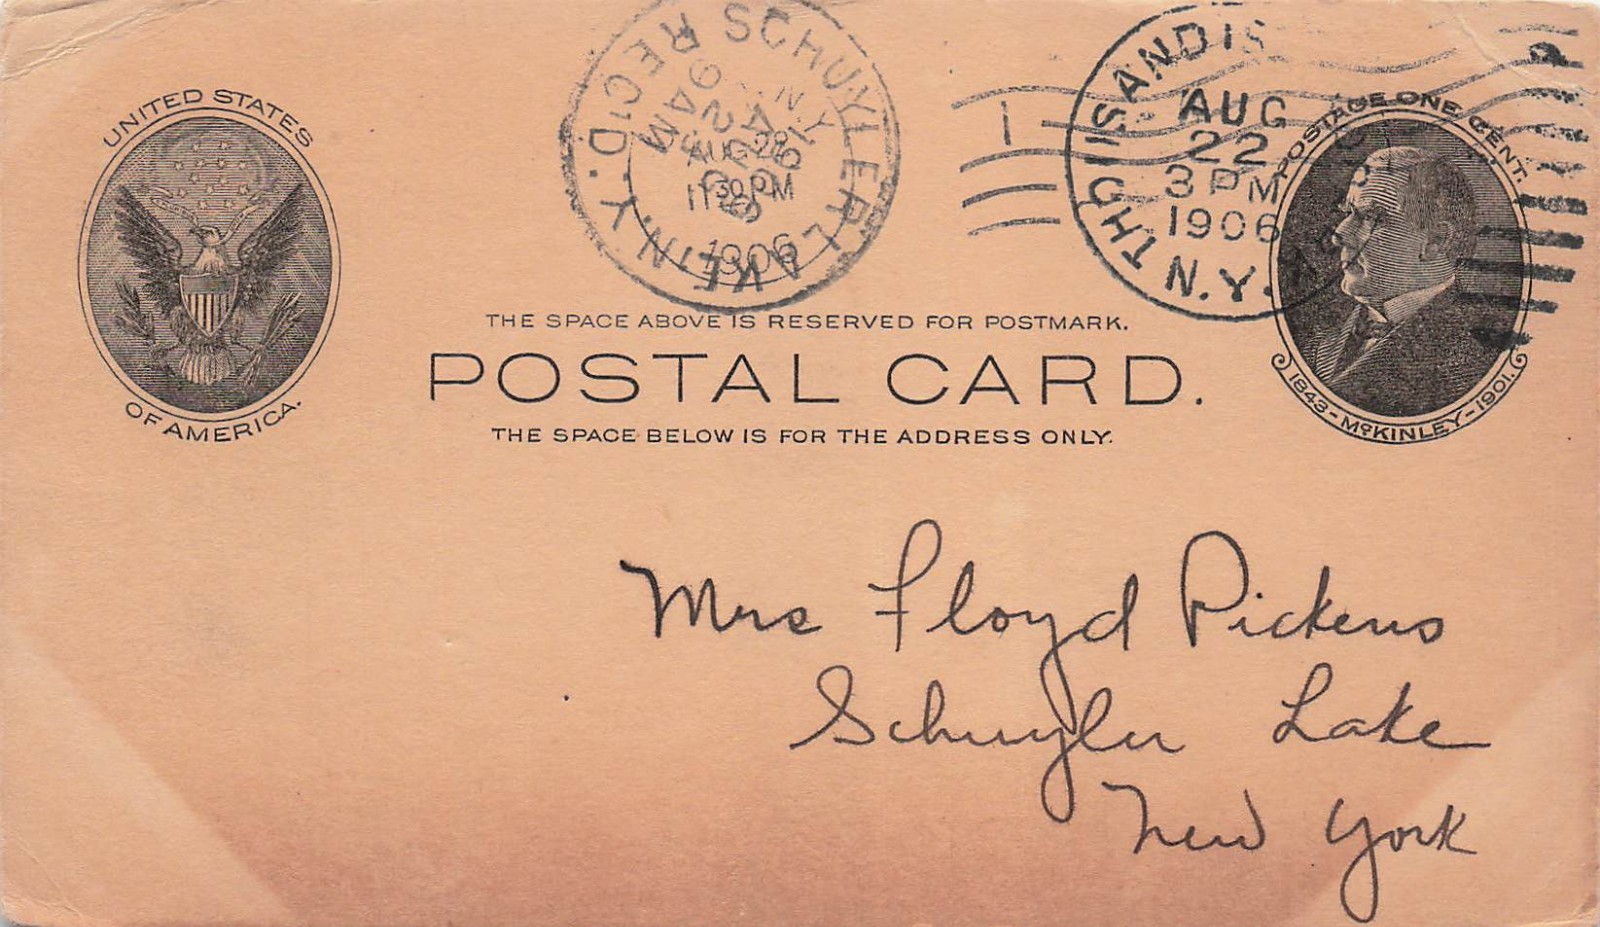 UNITED STATES
OF AMERICA.
SCHUYLER LAKE
N.Y.
REC'D.
AUG
1906
TH(1)ISANDIS
N.Y.
AUG
22
3 PM
1906
POSTAGE ONE CENT.
1843-McKINLEY-1901.
THE SPACE ABOVE IS RESERVED FOR POSTMARK.
POSTAL CARD.
THE SPACE BELOW IS FOR THE ADDRESS ONLY.
Mrs Floyd Pickens
Schuyler Lake
New York